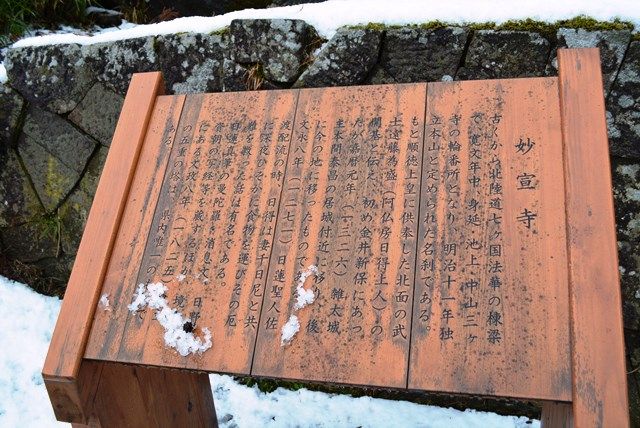 妙宣寺
古くから北陸道七ヶ国法華の棟梁
で、寛文年中、身延、池上、中山三ヶ
寺の輪番所となり、明治十一年独
立本山と定められた名刹である。
もと順徳上皇に供奉した北面の武
士遠藤為盛(阿仏房日得上人)の
開基と伝え、初め金井新保にあっ
たが嘉暦元年(一三二六)雑太城
主本間泰昌の居城付近に移り、後
に今の地に移ったもので
文永八年(一二七一)日蓮聖人佐
渡配流の時、日得は妻千日尼と共
に深夜ひそかに食物を運びその厄
難を救った話は有名である。
日蓮真筆の曼陀羅、消息文、日野
資朝の写経等を蔵するほか、境
にある文政八年(一八二五)
の五重の塔は、県内唯一の で
ある。